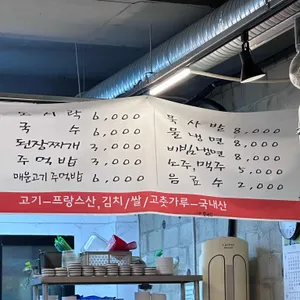 도시락 6,000
국수 6,000
된장찌개 3,000
주먹밥 3,000
매운고기 주먹밥 6,000
육사밥 8,000
물냉면 8,000
비빔냉면 8,000
소주,맥주 5,000
음료수 2,000
고기-프랑스산,김치/쌀/고춧가루-국내산